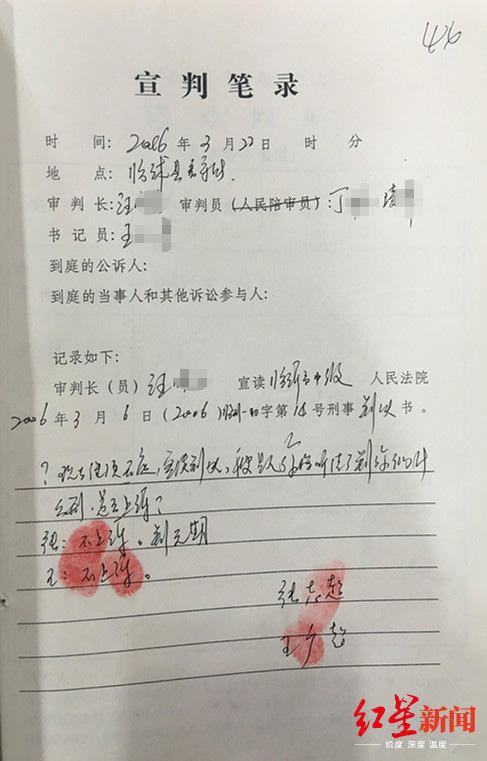 426
宣判笔录
时 间：2006年3月22日 时 分
地 点：临沭县看守所.
审判长：汪 审判员（人民陪审员）：丁
书记员：王
到庭的公诉人：
到庭的当事人和其他诉讼参与人：
记录如下：
审判长（员）汪 宣读临沂市中级 人民法院
2006年3月6日（2006）临刑一初字第14号刑事判决书。
？现在 宣读判决，被告人 听清了判 你们什
么刑.是否上诉？
张：不上诉。判无期
王：不上诉。
张志超
王广超
红星新闻
锐度 深度 温度